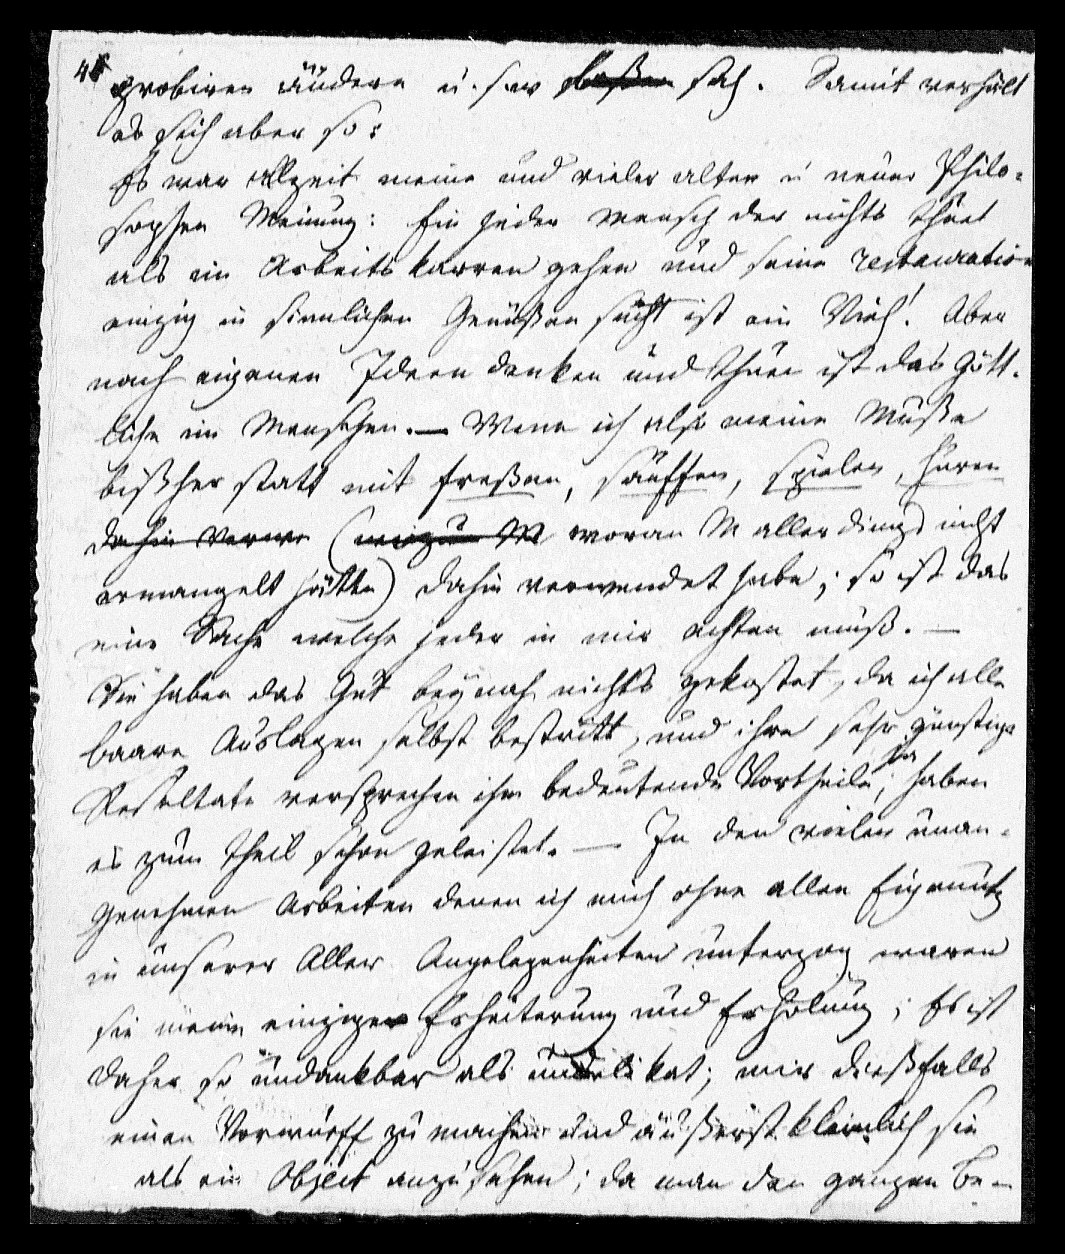 4
probiren ändern u. s. w sah. Damit verhält
es sich aber so:
Es war allzeit meine und vieler alter u neuer Philo-
sophen Meinung: Ein jeder Mensch der nichts thut
als im Arbeitskarren gehen und seine restauration
einzig in sinnlichen Genüßen sucht ist ein Vieh! Aber
nach eigenen Ideen denken und thun ist das Gött-
liche im Menschen. — Wenn ich also meine Muße
bißher statt mit freßen, sauffen, spielen, huren
dahin verwe (wozu M woran M allerdings nicht
ermangelt hätte) dahin verwendet habe; so ist das
eine Sache welche jeder in mir achten muß. —
Sie haben das Gut beynah nichts gekostet, da ich alle
baare Auslagen selbst bestritt, und ihre sehr günstige
Resultate versprechen ihm bedeutende Vortheile, ja haben
es zum Theil schon geleistet. — In den vielen unan-
genehmen Arbeiten denen ich mich ohne allen Eigennutz
in unserer Aller Angelegenheiten unterzog waren
sie meine einzige Erheiterung und Erholung; Es ist
daher so undankbar als undelikat; mir dießfalls
einen Vorwurff zu machen und äußerst kleinlich sie
als ein Object anzusehen; da man den ganzen Be-